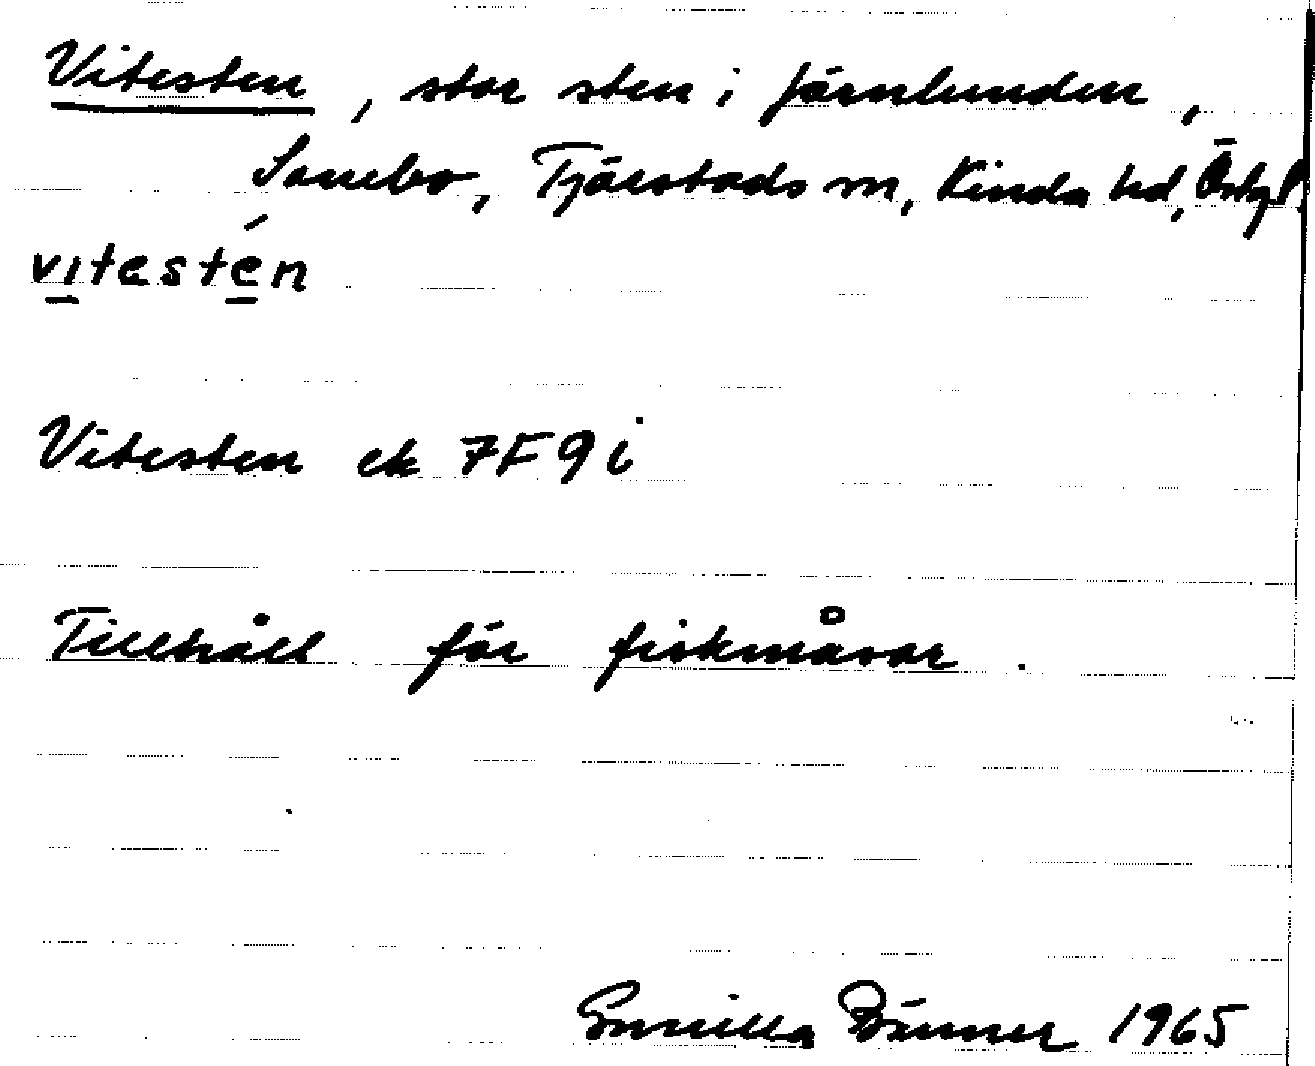 Vitesten, stor sten i Järnlunden,
Sonebo, Tjärstads sn, Kinda hd, Östgl
vitestén
Vitesten ek 7F9i
Tillhåll för fiskmåsar.
Gunilla 1965